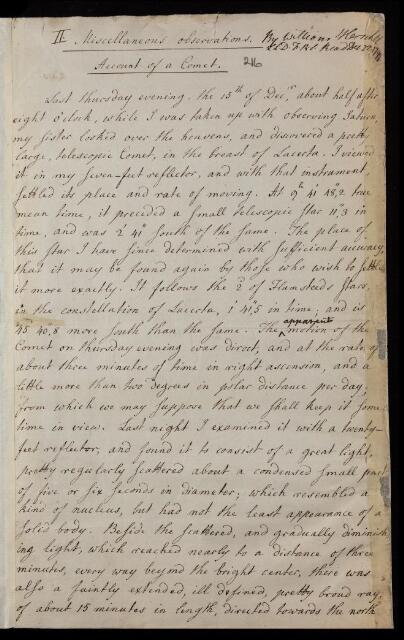 II Miscellaneous observations. By William Herschel
LL.D. F.R.S. Read Dec 22 1791
Account of a Comet. 216
Last thursday evening, the 15th of Decr about half after
eight o'clock, while I was taken up with observing Saturn,
my sister looked over the heavens, and discovered a pretty
large, telescopic Comet, in the breast of Lacerta. I viewed
it in my seven-feet reflector, and with that instrument,
settled its place and rate of moving. At 9h 41' 48",2 true
mean time, it preceded a small telescopic star 11",3 in
time, and was 2' 41" south of the same. The place of
this star I have since determined with sufficient accuracy,
that it may be found again by those who wish to settle
it more exactly. It follows the 2d of Flamsteeds stars,
in the constellation of Lacerta, 1' 41",5 in time; and is
45' 40",8 more south than the same. The apparent motion of the
Comet on thursday evening was direct, and at the rate of
about three minutes of time in right ascension, and a
little more than two degrees in polar distance per day,
from which we may suppose that we shall keep it some
time in view. Last night I examined it with a twenty-
feet reflector, and found it to consist of a great light,
pretty regularly scattered about a condensed small part
of five or six seconds in diameter; which resembled a
kind of nucleus, but had not the least appearance of a
solid body. Beside the scattered, and gradually diminish
ing light, which reached nearly to a distance of three
minutes, every way beyond the bright center, there was
also a faintly extended, ill defined, pretty broad ray,
of about 15 minutes in length, directed towards the north